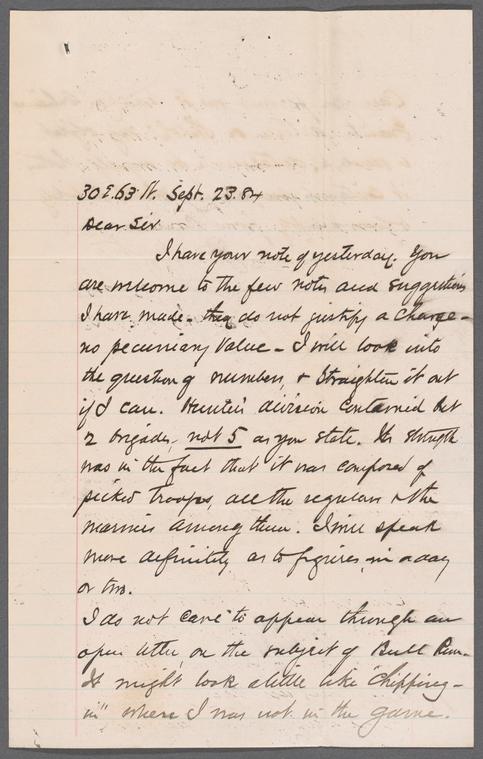 30 E. 63 St. Sept. 23. 84
Dear Sir
I have your note of yesterday. You
are welcome to the few notes and suggestions
I have made - they do not justify a charge -
no pecuniary value - I will look into
the question of numbers, & straighten it out
if I can. Hunter's division contained but
2 brigades, not 5 as you state. Its strength
was in the fact that it was composed of
picked troops, all the regulars & the
marines among them. I will speak
more definitely as to figures, in a day
or two.
I do not care to appear through an
open letter, on the subject of Bull Run.
It might look a little like "chipping-
in" where I was not in the game.